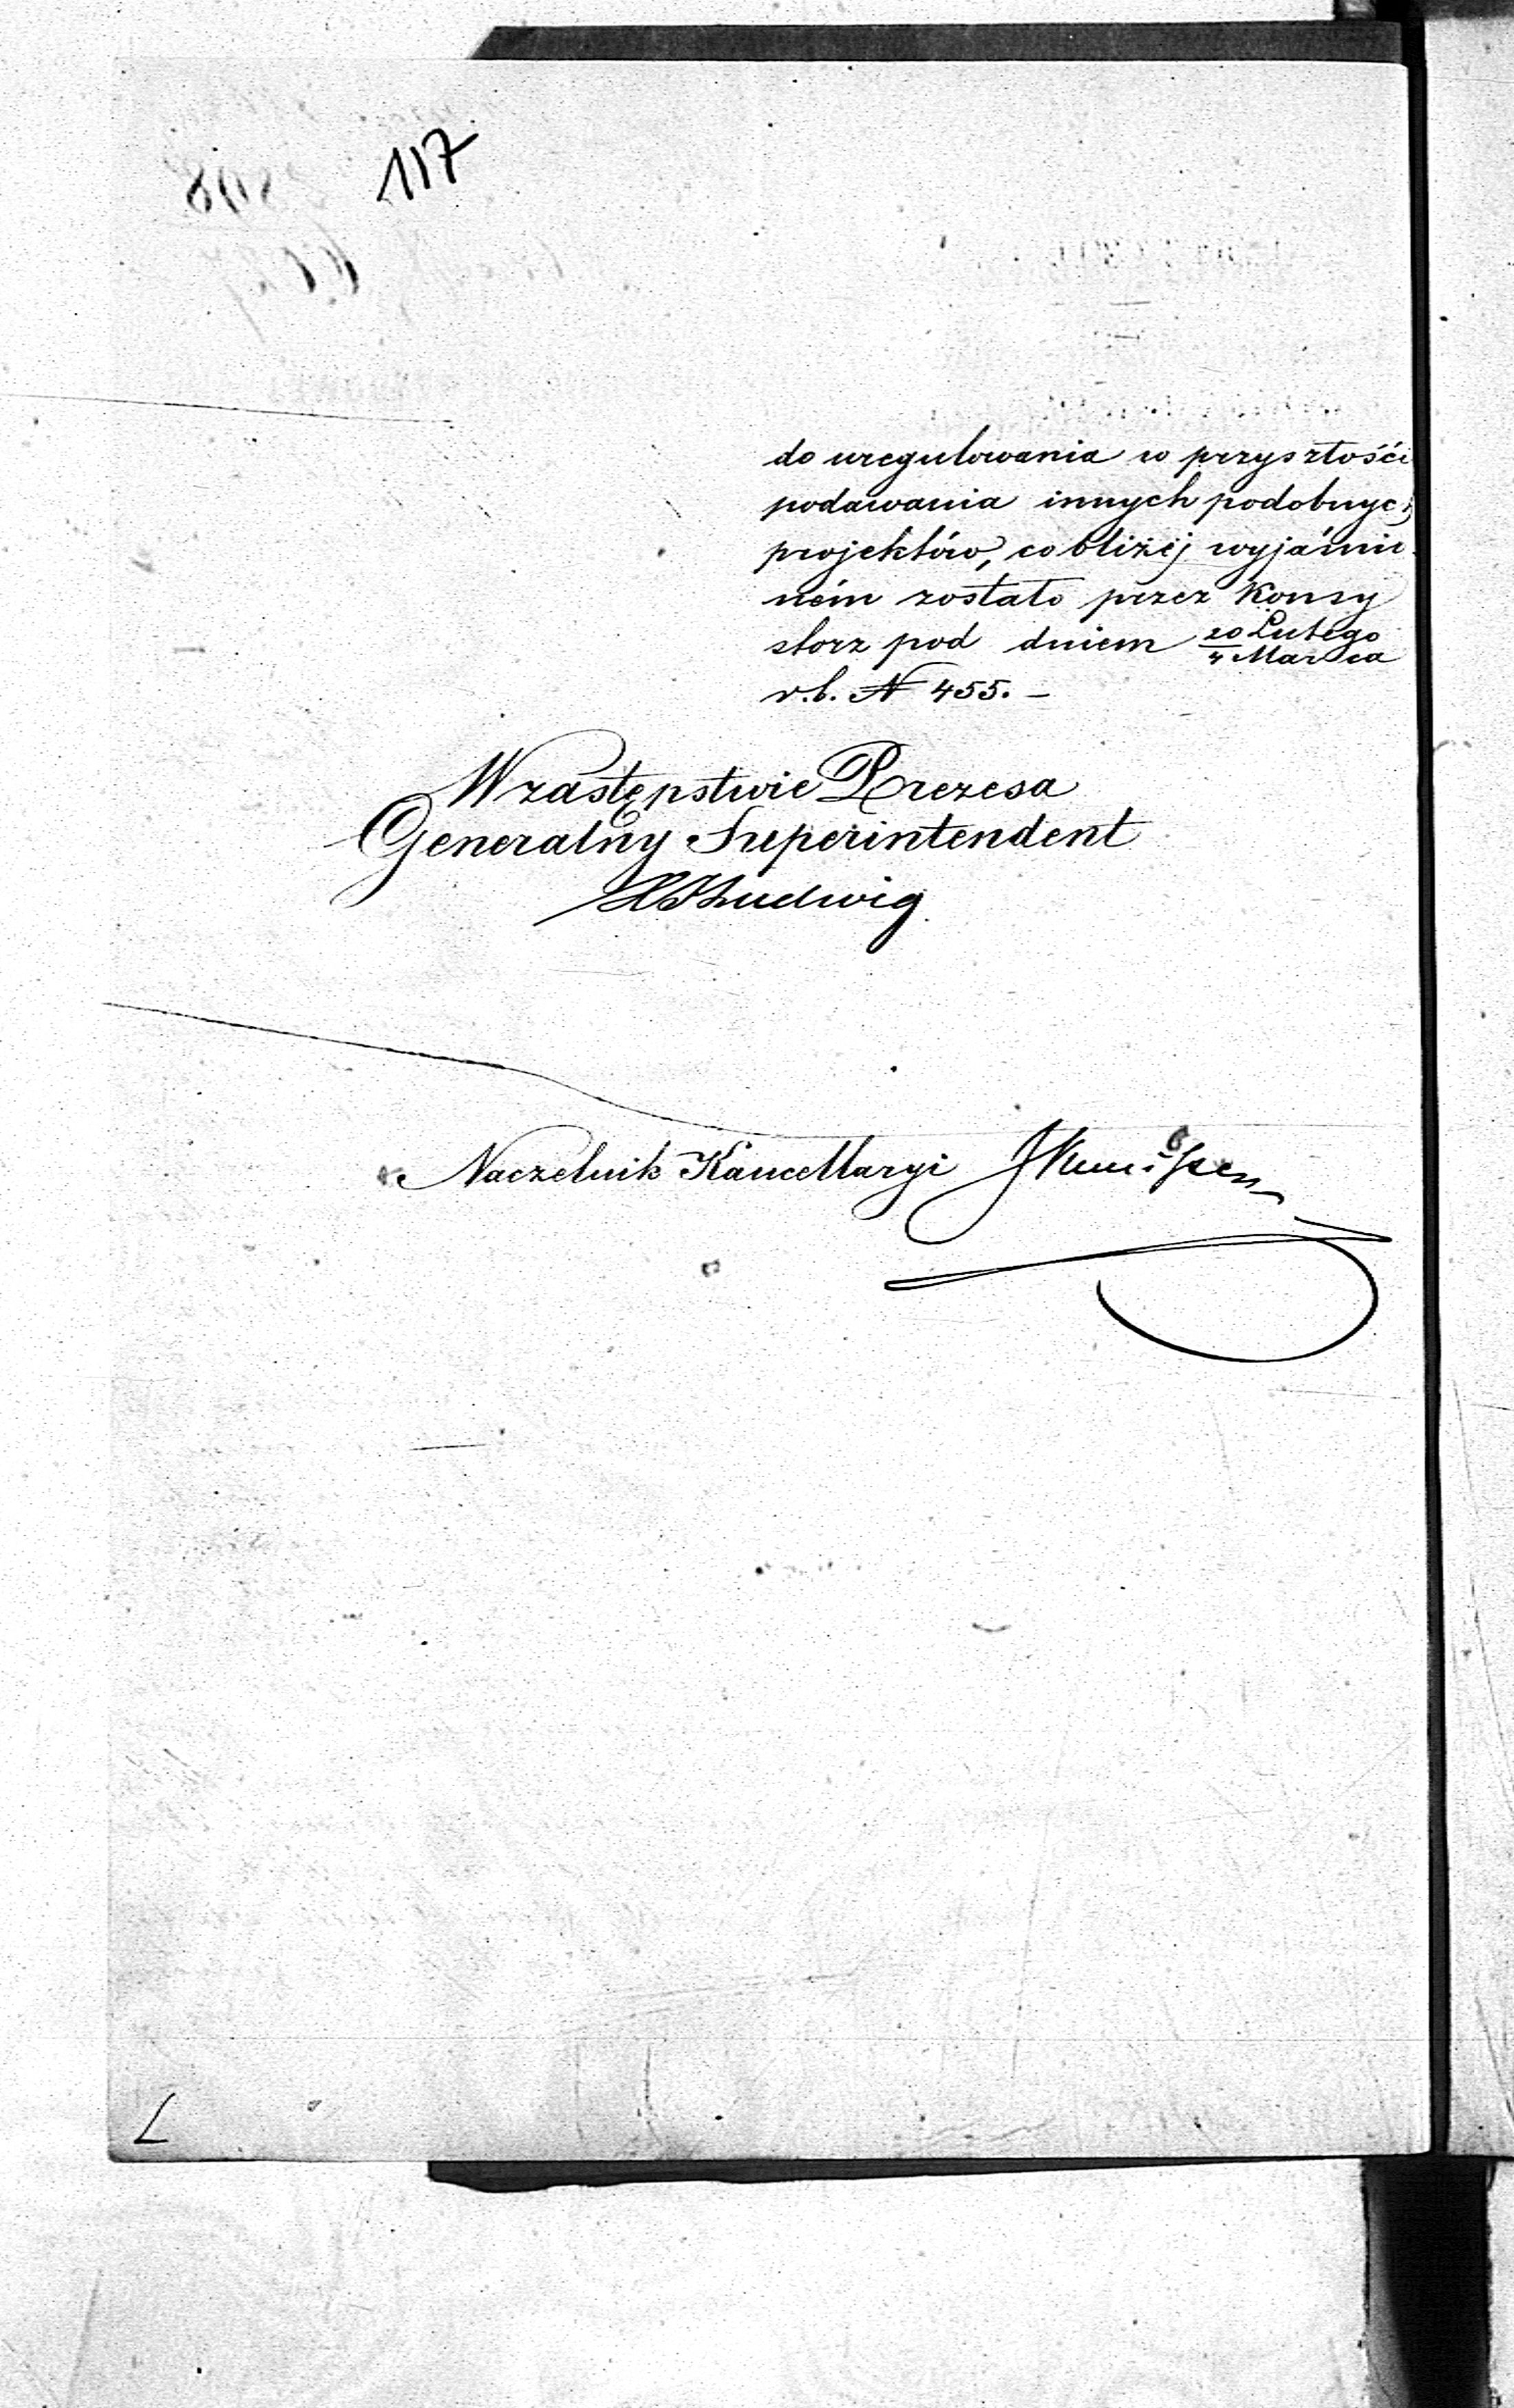 117
do uregulowania w przyszłości
podawania innych podobnych
projektów, co bliżej wyjaśnio
ném zostało przez Konsy
storz pod dniem 20 Lutego
4 Marca
r.b. N 455. —
W zastępstwie Prezesa
Generalny Superintendent
Ludwig
Naczelnik Kancellaryi
L